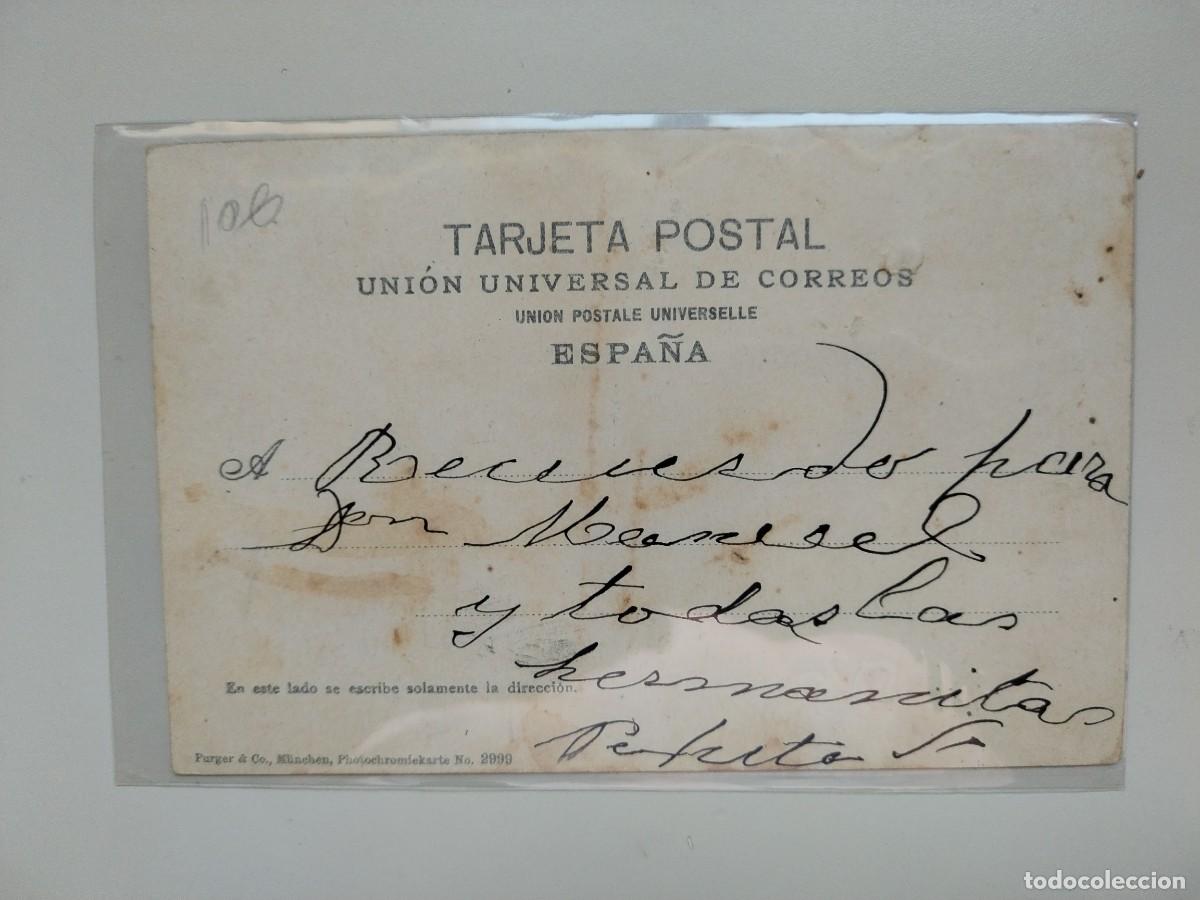 TARJETA POSTAL
UNIÓN UNIVERSAL DE CORREOS
UNION POSTALE UNIVERSELLE
ESPAÑA
A Recuerdo para
Don Manuel
y todas las
hermanitas
En este lado se escribe solamente la dirección.
Purger & Co., München, Photochromiekarte No. 2999
todocoleccion